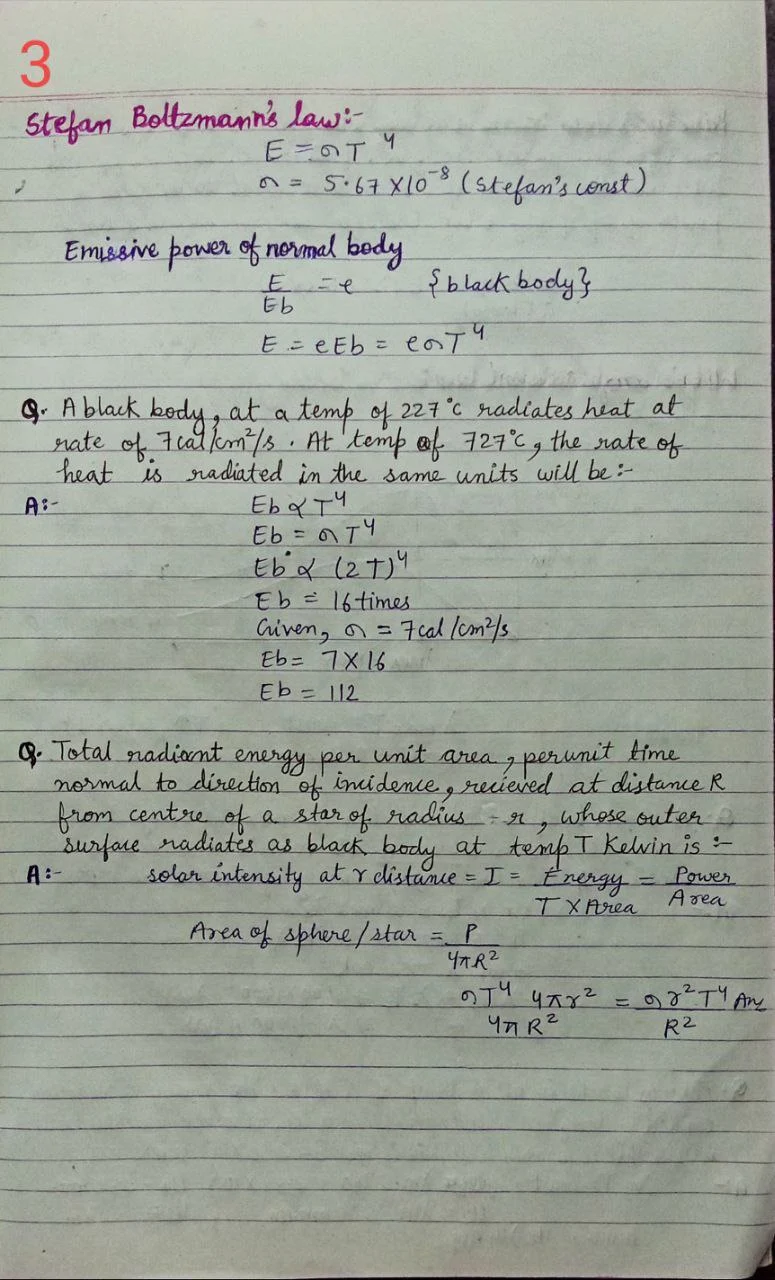 3
Stefan Boltzmann's law:-
E = σT⁴
σ = 5.67 X10⁻⁸ (Stefan's const)
Emissive power of normal body
E/Eb = e {black body}
E = eEb = eσT⁴
Q. A black body, at a temp of 227°c radiates heat at
rate of 7cal/cm²/s. At temp of 727°c, the rate of
heat is radiated in the same units will be:-
A:- Eb ∝ T⁴
Eb = σT⁴
Eb' ∝ (2T)⁴
Eb = 16times
Given, σ = 7cal/cm²/s
Eb = 7X16
Eb = 112
Q. Total radiant energy per unit area, perunit time
normal to direction of incidence, recieved at distance R
from centre of a star of radius - r, whose outer
surface radiates as black body at temp T Kelvin is :-
A:- solar intensity at r distance = I = Energy/T X Area = Power/Area
Area of sphere/star = P/4πR²
σT⁴ 4πr²/4πR² = σr²T⁴/R² Ans